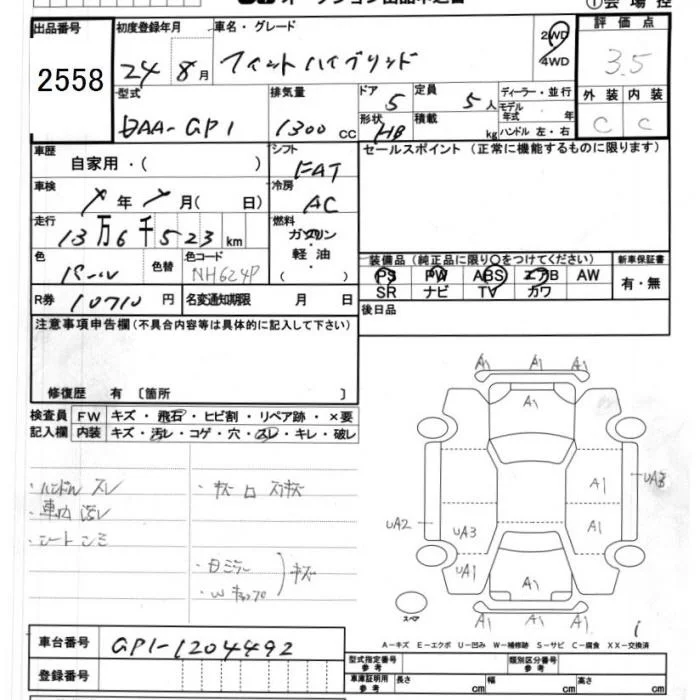 オークション出品申込書
①会場控
出品番号 初度登録年月 車名・グレード 評価点
2558 24年 8月 フィットハイブリッド 2WD 4WD 3.5
型式 排気量 ドア 定員 ディーラー・並行 外装 内装
DAA-GP1 1300 cc 5 5人 モデル年式 年 C C
形状 HB 積載 kg ハンドル 左・右
車歴 自家用・( ) シフト FAT セールスポイント(正常に機能するものに限ります)
車検 年 月( 日) 冷房 AC
走行 13万6千523km 燃料 ガソリン
軽油
・( )
色 パール 色替 色コード NH624P
装備品(純正品に限り○をつけてください) 新車保証書
PS PW ABS エアB AW 有・無
SR ナビ TV カワ
R券 10710円 名変通知期限 月 日 後日品
注意事項申告欄(不具合内容等は具体的に記入して下さい)
修復歴 有 〔箇所 〕
検査員 FW キズ・飛石・ヒビ割・リペア跡・×要
記入欄 内装 キズ・汚レ・コゲ・穴・スレ・キレ・破レ
・ハンドル スレ
・車内 汚レ
・シート シミ
・ミラー
キズ
A1 A1 A1
A1
A1 UA3
UA2 UA3 A1
UA1
A1
A1 A1
スペア
A-キズ E-エクボ U-凹み W-補修跡 S-サビ C-腐食 XX-交換済
車台番号 GP1-1204492
登録番号
型式指定番号 参考 類別区分番号 参考
車庫証明用 参考 長さ cm 幅 cm 高さ cm